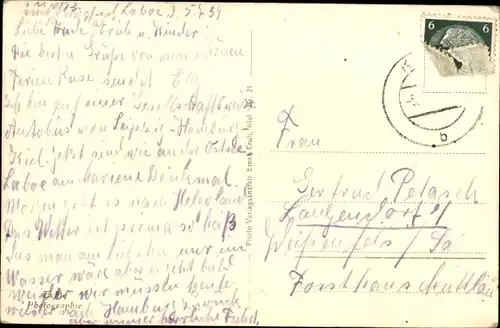 Laboe d. 5.7.39
Liebe Trude, Erich u. Kinder!
Die besten Grüße von meiner schönen
Ferien Reise sendet Elly
Ich bin auf einer Gesellschaftsreise
Autobus von Leipzig - Hamburg
Kiel. Jetzt sind wir an der Ostsee
Laboe am Marine Denkmal.
Morgen geht es nach Helgoland
Das Wetter ist heiß
das man am liebsten nur im
Wasser wäre aber es geht bald
weiter wir müssen heute
wieder nach Hamburg zurück
aber immer herrliche Fahrt.
Photographie
Photo Verlagsanstalt Ernst Kiel
6 6
b
Frau
Gertrud Petasch
Langendorf
Weißenfels / Sa
Forsthaus